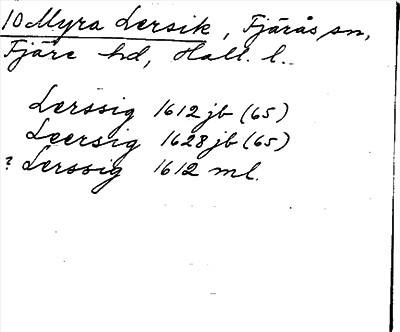 10 Myra Lersik, Fjärås sn,
Fjäre hd, Hall. l.
Lerssig 1612 jb (65)
Leersig 1628 jb (65)
? Lerssig 1612 ml.